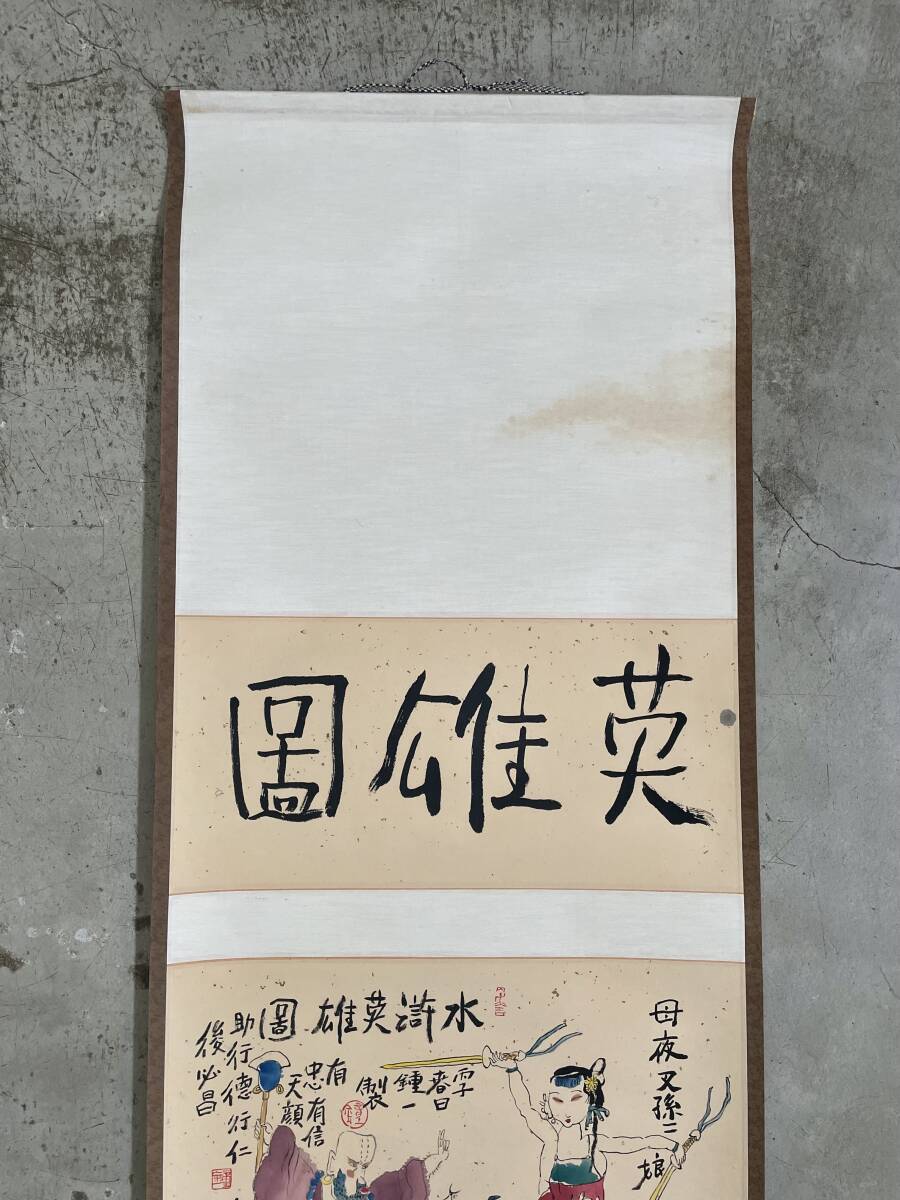 英雄圖
水滸英雄圖
春日
鍾一
製
有
忠有信
天顏
助行德行仁
後必昌
母夜叉孫二
娘